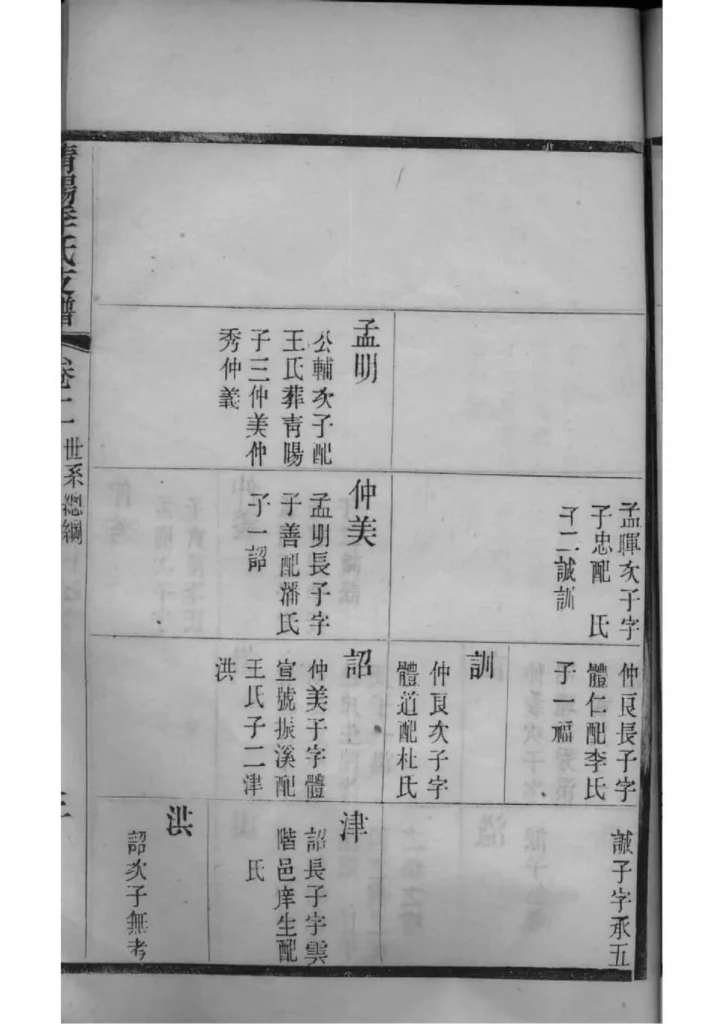 孟明
公輔次子配
王氏葬青陽
子三仲美仲
秀仲義
孟暉次子字
子忠配 氏
子二誠訓
仲美
孟明長子字
子善配潘氏
子一詔
仲良長子字
體仁配李氏
子一福
訓
仲良次子字
體道配杜氏
詔
仲美子字體
宣號振溪配
王氏子二津
洪
誠子字承五
津
詔長子字雲
階邑庠生配
氏
洪
詔次子無考
青陽李氏支譜
卷二
世系總綱
三